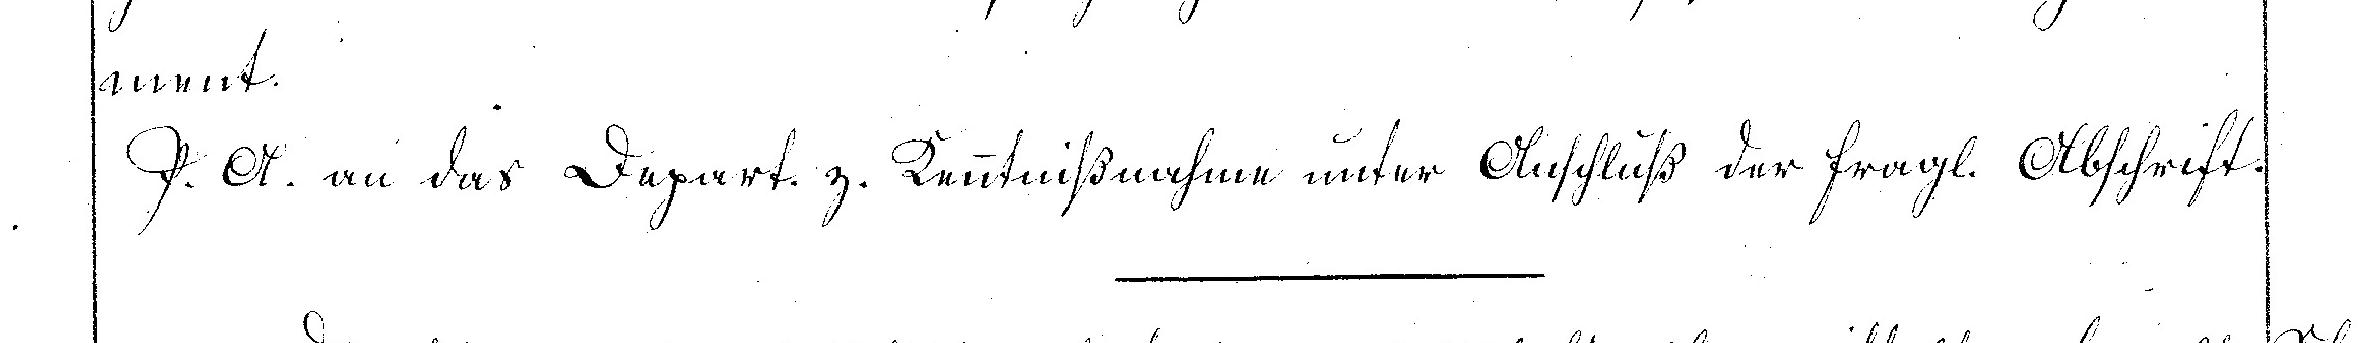 ment.
P. A. an das Depart. z. Keñtnißnahme unter Anschluß der fragl. Abschrift.